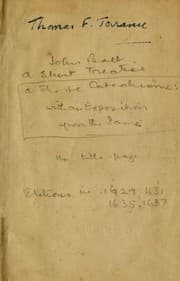 Thomas F. Torrance
John Ball
A Short Treatise
Catechisme
with an Exposition
upon the Same
No title page
Editions in 1629, 1631
1635, 1637